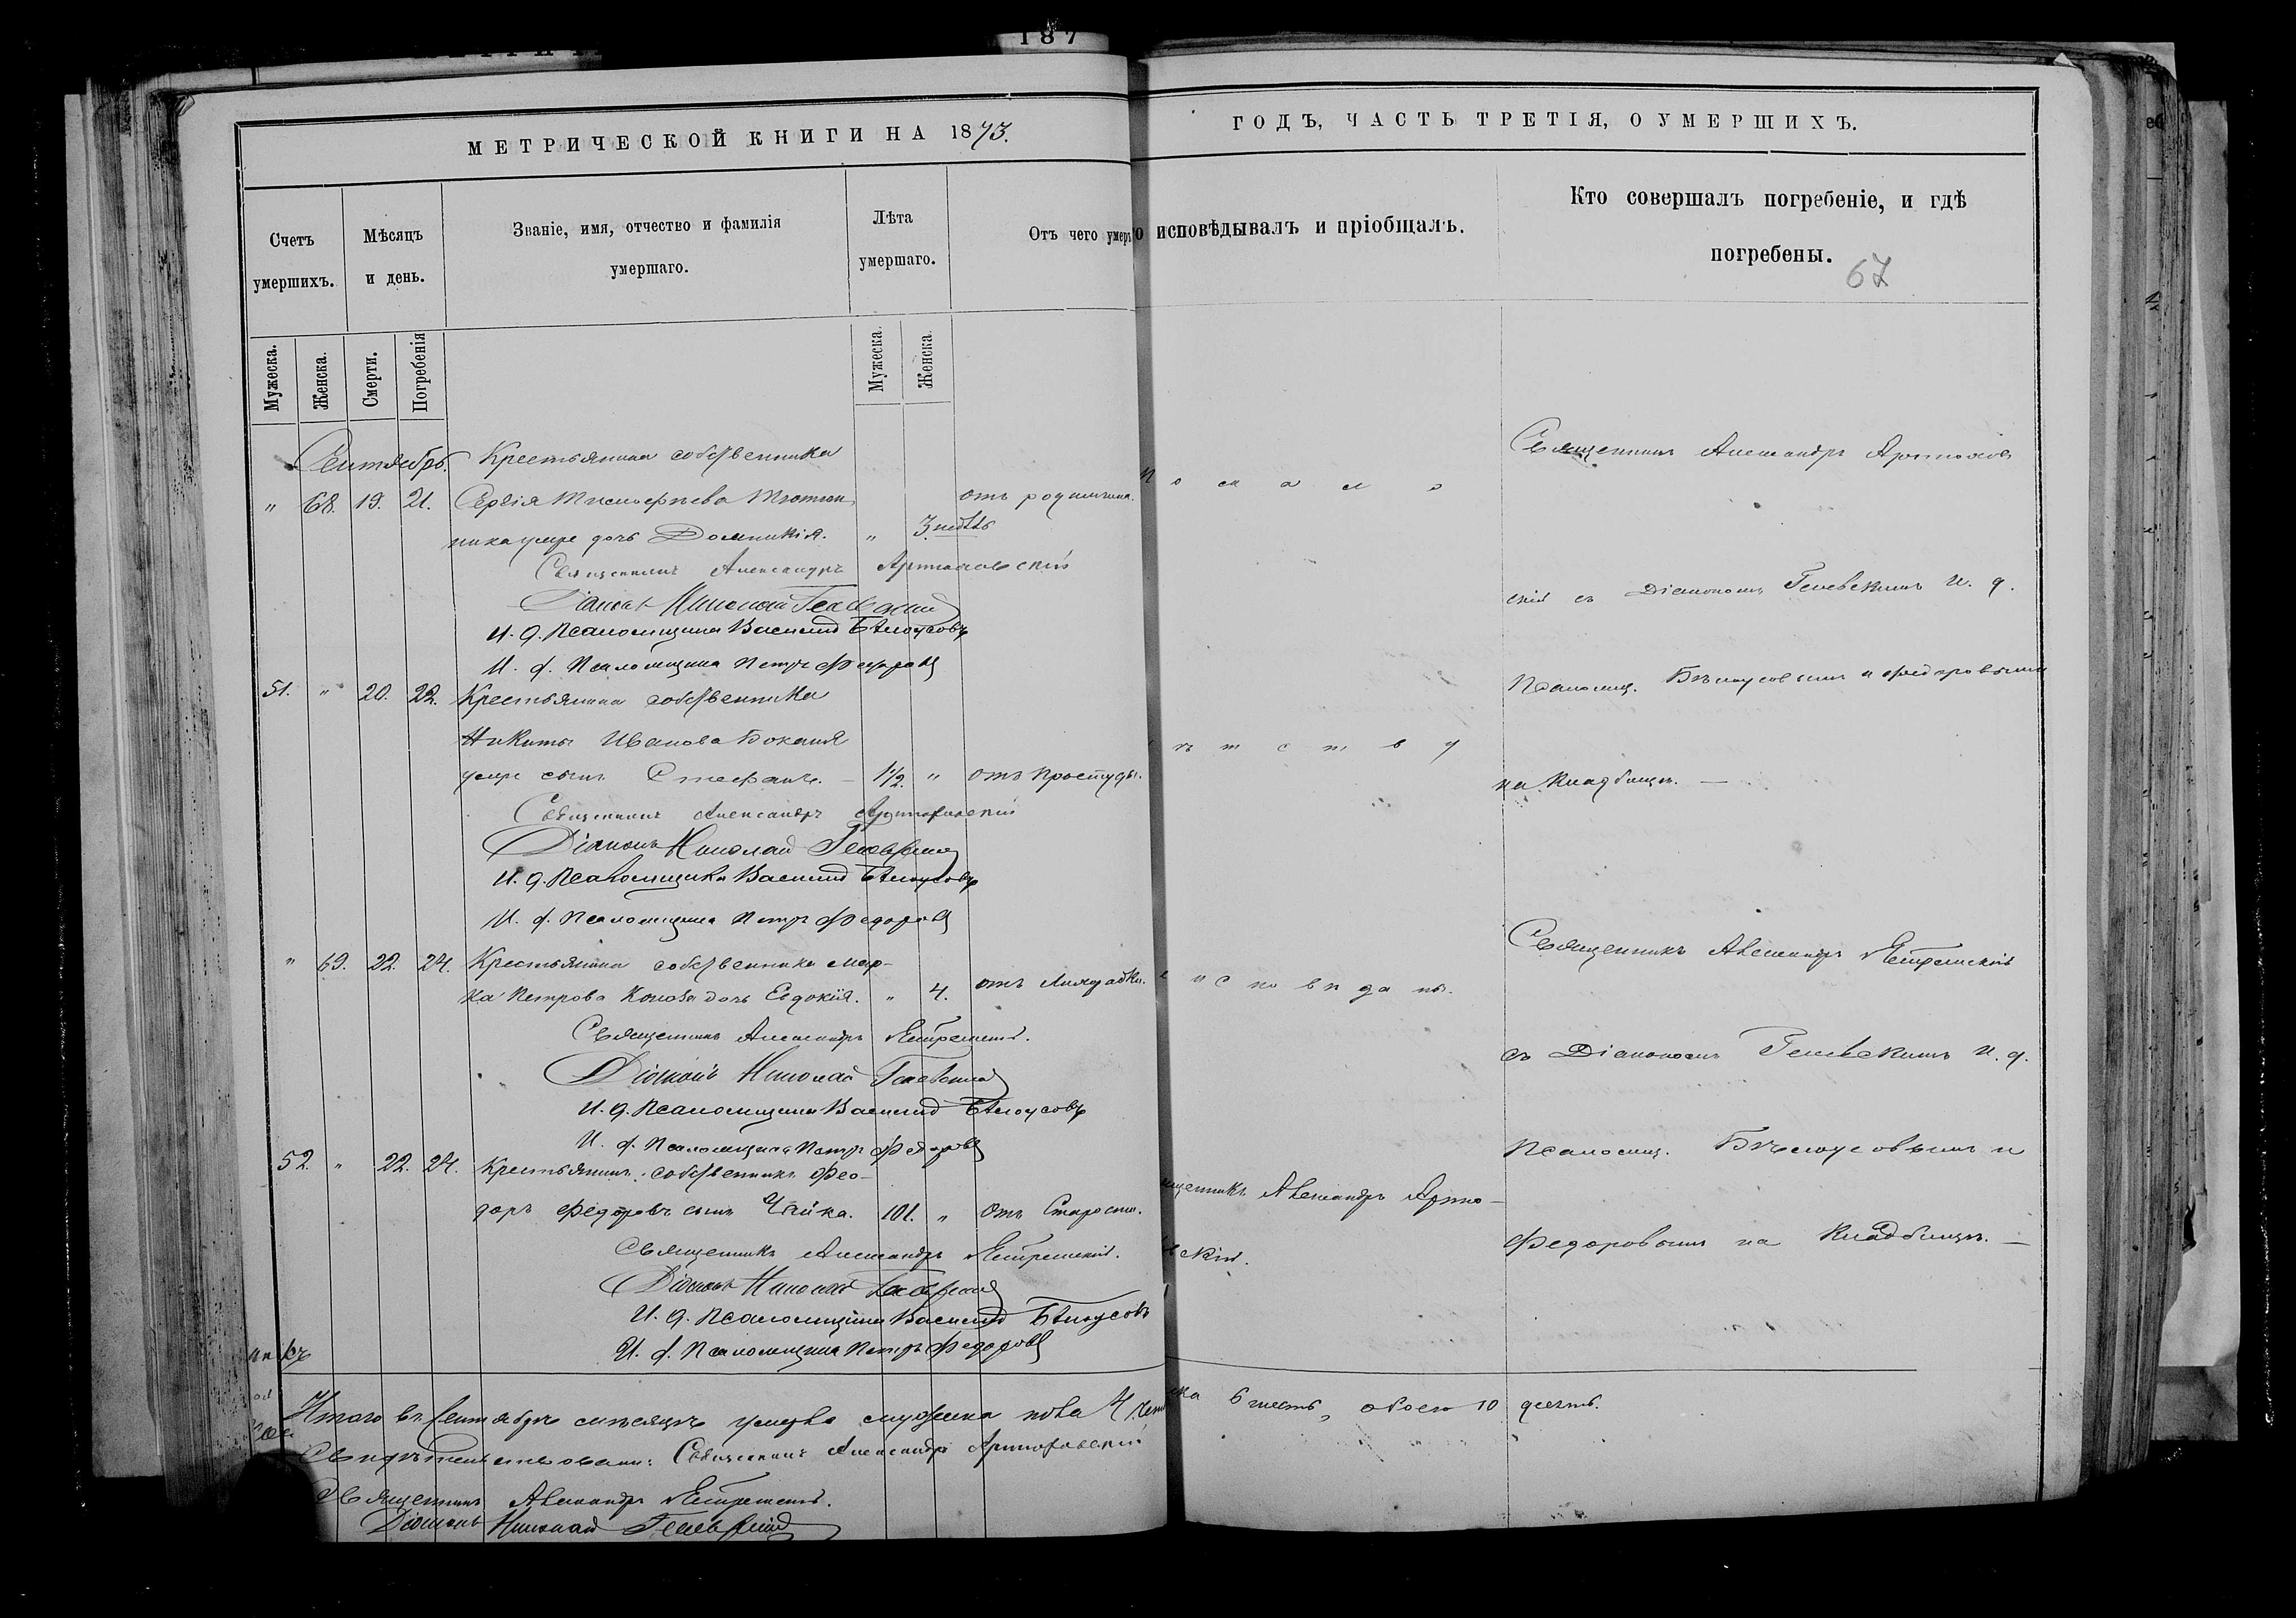 187
МЕТРИЧЕСКОЙ КНИГИ НА 1873.
Счетъ умершихъ.
Мѣсяцъ и день.
Званіе, имя, отчество и фамилія умершаго.
Лѣта умершаго.
Отъ чего умеръ
Мужеска.
Женска.
Смерти.
Погребенія
Мужеска.
Женска
Сентябрь. Крестьянина собственника
" 68. 19. 21. Сергія Тимофѣева
умре дочь Домникія. " 3 недѣль отъ родимчика.
Священникъ Александръ
Діаконъ Николай Гелевскій
И. д. Псаломщика Василій Бѣлоусовъ
И. д. Псаломщика Петръ Федоровъ
51. " 20. 22. Крестьянина собственника
Никиты Иванова
умре сынъ Стефанъ. — 1½. " отъ простуды.
Священникъ Александръ
Діаконъ Николай Гелевскій
И. д. Псаломщика Василій Бѣлоусовъ
И. д. Псаломщика Петръ Федоровъ
" 69. 22. 24. Крестьянина собственника Мар-
ка Петрова дочь Евдокія. " 4. отъ лихорадки.
Священникъ Александръ
Діаконъ Николай Гелевскій
И. д. Псаломщика Василій Бѣлоусовъ
И. д. Псаломщика Петръ Федоровъ
52. " 22. 24. Крестьянинъ собственникъ Фео-
доръ Федоровъ сынъ Чайка. 101. " Отъ Старости.
Священникъ Александръ
Діаконъ Николай Гелевскій
И. д. Псаломщика Василій Бѣлоусовъ
И. д. Псаломщика Петръ Федоровъ
Итого въ Сентябрѣ мѣсяцѣ умерло мужеска пола 4
Свидѣтельствовали: Священникъ Александръ
Священникъ Александръ
Діаконъ Николай Гелевскій
ГОДЪ, ЧАСТЬ ТРЕТІЯ, О УМЕРШИХЪ.
о исповѣдывалъ и пріобщалъ.
Кто совершалъ погребеніе, и гдѣ
погребены.
67
По мало
Священникъ Александръ
скій съ Діакономъ Гелевскимъ И. д.
Псаломщ. Бѣлоусовымъ и Федоровымъ
ѣтству
на кладбищѣ. —
Священникъ Александръ
е исповѣданы.
съ Діакономъ Гелевскимъ И. д.
Псаломщ. Бѣлоусовымъ и
щенникъ Александръ
Федоровымъ на кладбищѣ. —
скій.
ка 6 шесть, обоего 10 десять.